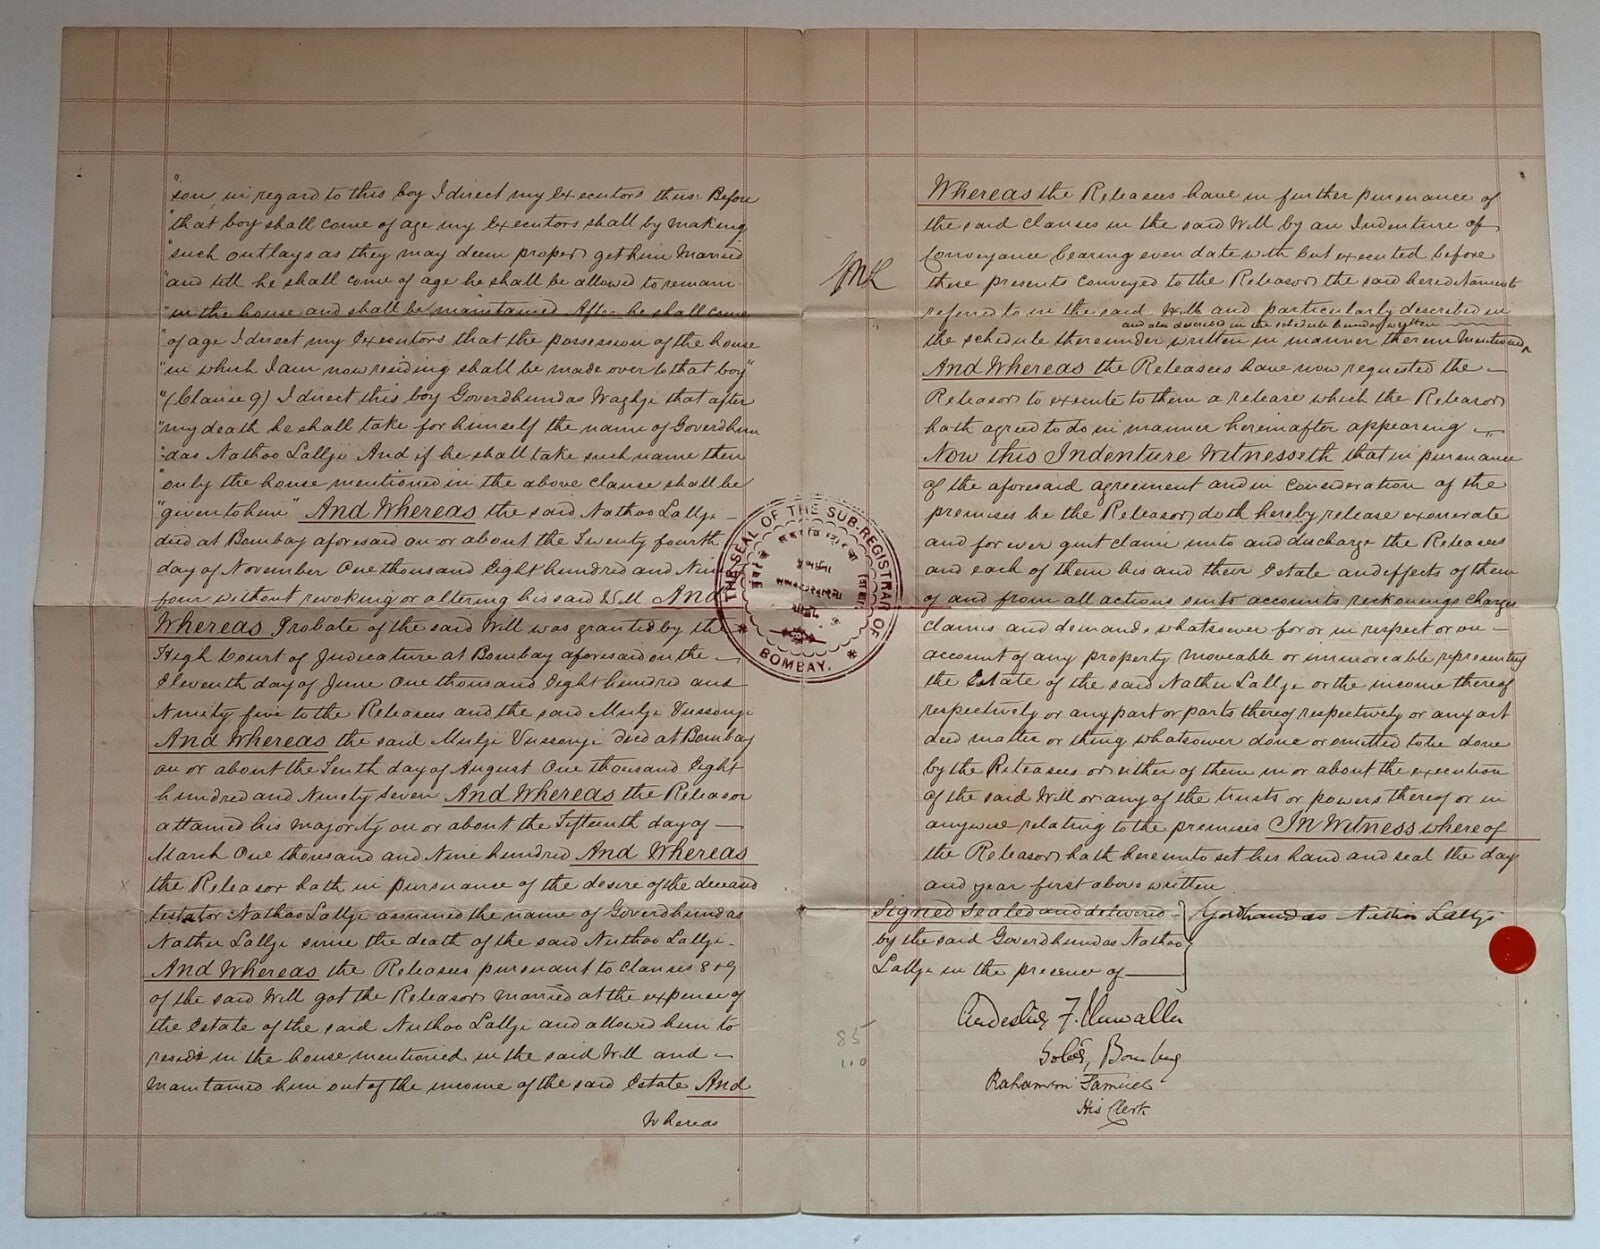 "son, in regard to this boy I direct my executors thus: Before
"that boy shall come of age my executors shall by making
"such outlays as they may deem proper get him married
"and till he shall come of age he shall be allowed to remain
"in the house and shall be maintained After he shall come
"of age I direct my executors that the possession of the house
"in which I am now residing shall be made over to that boy"
"(Clause 9) I direct this boy Goverdhundas Waghje that after
"my death he shall take for himself the name of Goverdhun
"das Nathoo Lallje And if he shall take such name then
"only the house mentioned in the above clause shall be
"given to him" And Whereas the said Nathoo Lallje
died at Bombay aforesaid on or about the Twenty fourth
day of November One thousand Eight hundred and Nine
four without revoking or altering his said Will And
Whereas Probate of the said Will was granted by the
High Court of Judicature at Bombay aforesaid on the
Eleventh day of June One thousand Eight hundred and
Ninety five to the Releasees and the said Mulje Vussonje
And Whereas the said Mulje Vussonje died at Bombay
on or about the Tenth day of August One thousand Eight
hundred and Ninety Seven And Whereas the Releasor
attained his majority on or about the Fifteenth day of
March One thousand and Nine hundred And Whereas
the Releasor hath in pursuance of the desire of the deceased
testator Nathoo Lallje assumed the name of Goverdhundas
Nathu Lallje since the death of the said Nuthoo Lallje
And Whereas the Releasees pursuant to clauses 8 & 9
of the said Will got the Releasor married at the expense of
the Estate of the said Nuthoo Lallje and allowed him to
reside in the house mentioned in the said Will and
maintained him out of the income of the said Estate And
Whereas
THE SEAL OF THE SUB-REGISTRAR OF
BOMBAY.
Whereas the Releasees have in further pursuance of
the said clauses in the said Will by an Indenture of
Conveyance bearing even date with but executed before
these presents conveyed to the Releasor the said hereditaments
referred to in the said Will and particularly described in
and also described in the schedule hereunder written
the schedule thereunder written in manner therein mentioned
And Whereas the Releasees have now requested the
Releasor to execute to them a release which the Releasor
hath agreed to do in manner hereinafter appearing
Now this Indenture Witnesseth that in pursuance
of the aforesaid agreement and in consideration of the
premises he the Releasor doth hereby release exonerate
and for ever quit claim unto and discharge the Releasees
and each of them his and their Estate and effects of them
of and from all actions suits accounts reckonings charges
claims and demands whatsoever for or in respect or on
account of any property moveable or immoveable representing
the Estate of the said Nathu Lallje or the income thereof
respectively or any part or parts thereof respectively or any act
deed matter or thing whatsoever done or omitted to be done
by the Releasees or either of them in or about the execution
of the said Will or any of the trusts or powers thereof or in
anywise relating to the premises In Witness whereof
the Releasor hath hereunto set his hand and seal the day
and year first above written
Signed Sealed and delivered
by the said Goverdhundas Nathoo
Lallje in the presence of
Gordhandas Nathoo Lallji
Ardeshir F.
Solr, Bombay
Rahamim Samuel
His Clerk
85